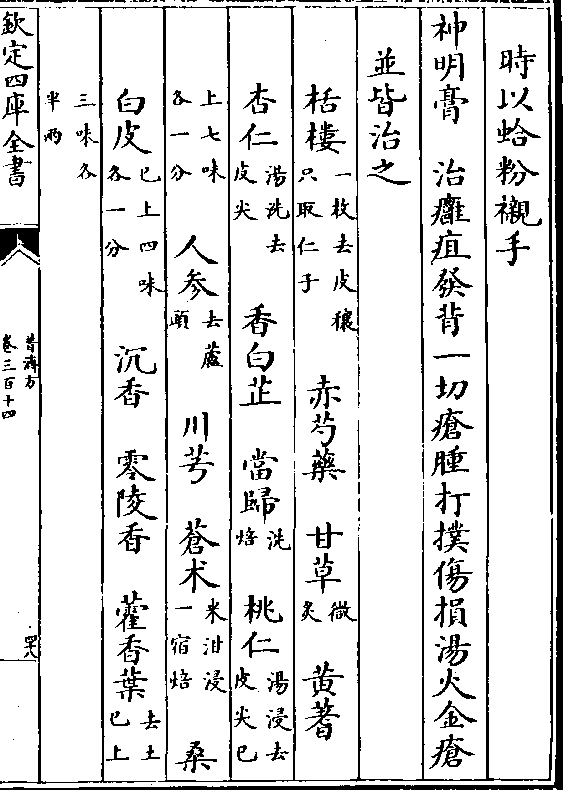 時以蛤粉襯手
神明膏　治癰疽發背一切瘡腫打撲傷損湯火金瘡
並皆治之
栝樓一枚去皮穰只取仁子　赤芍藥　甘草微炙　黄蓍
杏仁湯洗去皮尖　香白芷　當歸洗焙　桃仁湯浸去皮尖已
上七味各一分　人參去蘆頭　川芎　蒼术米泔浸一宿焙　桑
白皮已上四味各一分　沉香　零陵香　藿香葉去土已上
三味各半兩
欽定四庫全書
普濟方
卷三百十四
四八